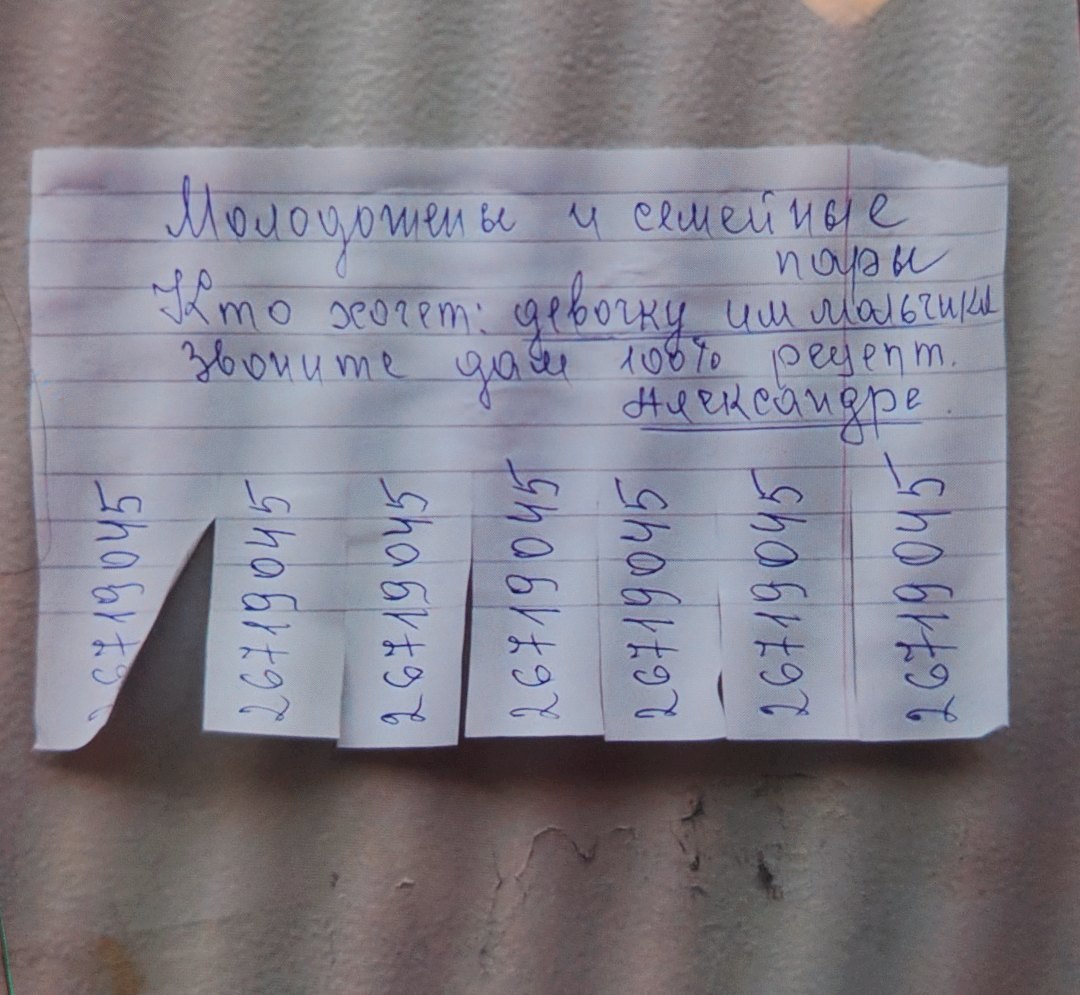 Молодожены и семейные
пары
Кто хочет: девочку или мальчика
Звоните дам 100% рецепт.
Александре.
26719045
26719045
26719045
26719045
26719045
26719045
26719045